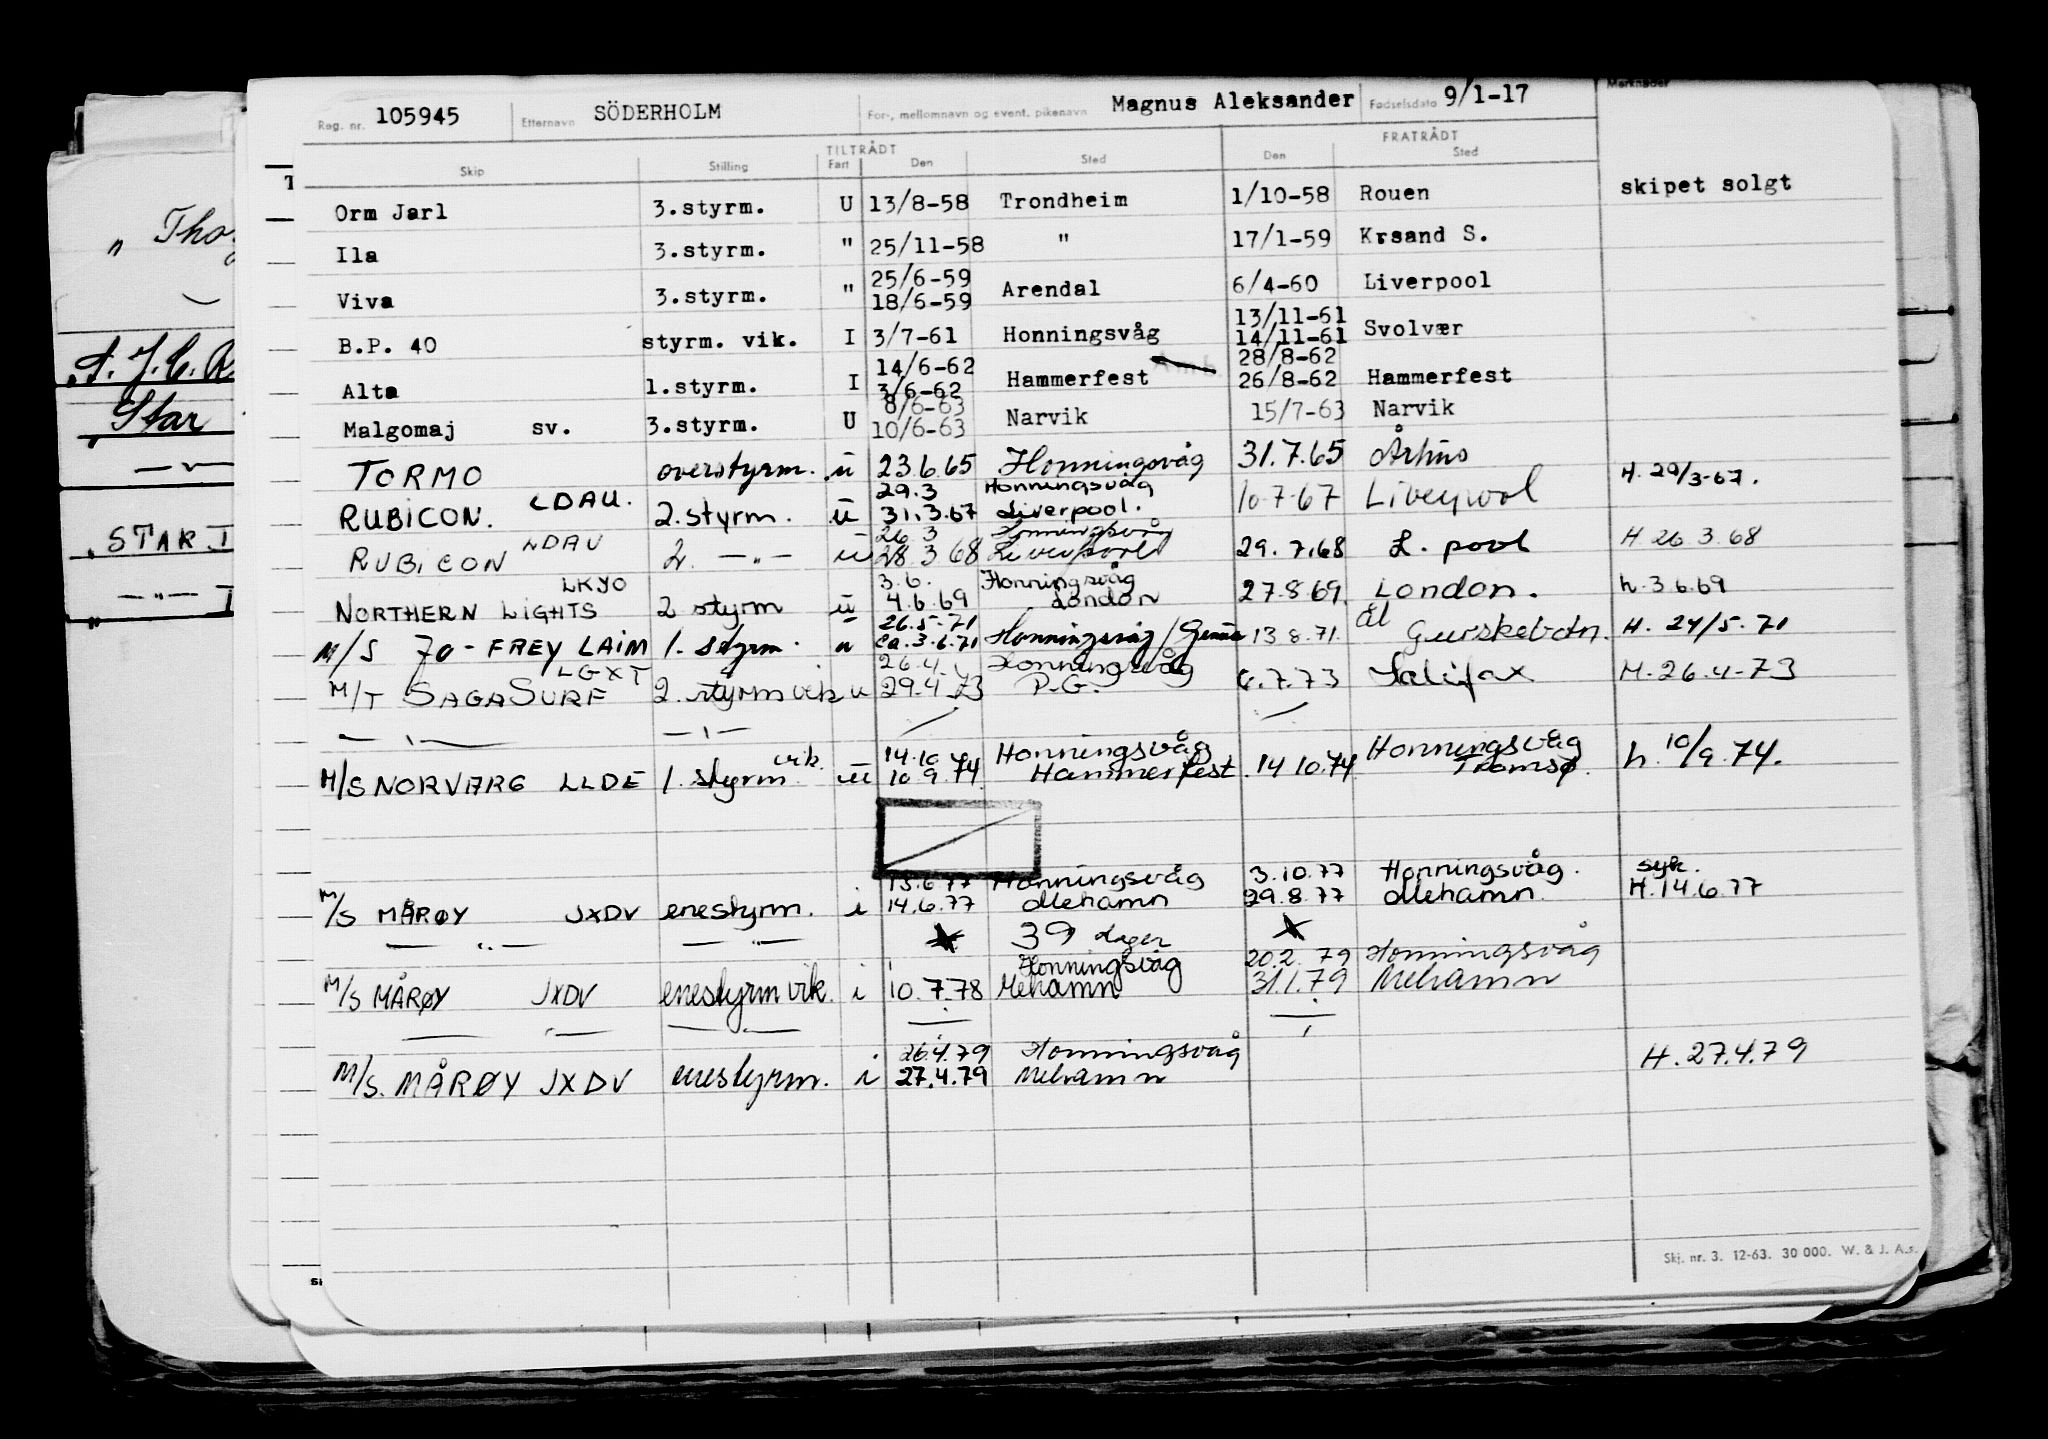 Reg. nr. 105945 Etternavn SÖDERHOLM For-, mellomnavn og event. pikenavn Magnus Aleksander Fødselsdato 9/1-17 Merknader
TILTRÅDT FRATRÅDT
Skip Stilling Fart Den Sted Den Sted
Orm Jarl 3.styrm. U 13/8-58 Trondheim 1/10-58 Rouen skipet solgt
Ila 3.styrm. " 25/11-58 " 17/1-59 Krsand S.
25/6-59
Viva 3.styrm. " 18/6-59 Arendal 6/4-60 Liverpool
13/11-61
B.P. 40 styrm. vik. I 3/7-61 Honningsvåg 14/11-61 Svolvær
14/6-62 28/8-62
Alta 1.styrm. I 3/6-62 Hammerfest 26/8-62 Hammerfest
8/6-63
Malgomaj sv. 3.styrm. U 10/6-63 Narvik 15/7-63 Narvik
TORMO overstyrm. u 23.6.65 Honningsvåg 31.7.65 Århus
29.3 Honningsvåg
RUBICON. LDAU. 2.styrm. u 31.3.67 Liverpool. 10-7-67 Liverpool H. 29/3-67.
26.3 Honningsvåg
RUBICON LDAU 2. — " — u 28.3.68 Liverpool 29.7.68 L. pool H 26.3.68
3.6. Honningsvåg
NORTHERN LIGHTS LKYO 2 styrm u 4.6.69 London 27.8.69. London. h. 3.6.69
26.5.71
M/S 70 - FREY LAIM 1. styrm. u ca. 3.6.71 Honningsvåg / Genua 13.8.71. ål Gurskebotn. H. 24/5.71
26.4. Honningsvåg
M/T SAGASURF LGXT 2. styrm vik u 29.4.73 P.G. 6.7.73 Halifax H. 26.4-73
— " — — " —
14.10 Honningsvåg Honningsvåg
M/S NORVARG LLDE 1. styrm. vik. u 10.9.74 Hammerfest. 14.10.74 Tromsø. h. 10/9.74.
13.6.77 Honningsvåg 3.10.77 Honningsvåg. syk.
M/S MÅRØY JXDV enestyrm. i 14.6.77 Mehamn 29.8.77 Mehamn. H. 14.6.77
— " — — " — 39 dager
Honningsvåg 20.2.79 Honningsvåg
M/S MÅRØY JXDV enestyrm vik. i 10.7.78 Mehamn 31.1.79 Mehamn
— " — — " —
26.4.79 Honningsvåg
M/S. MÅRØY JXDV enestyrm. i 27.4.79 Mehamn H. 27.4.79
Skj. nr. 3. 12-63. 30 000. W. & J. A.s.
Star
STAR I